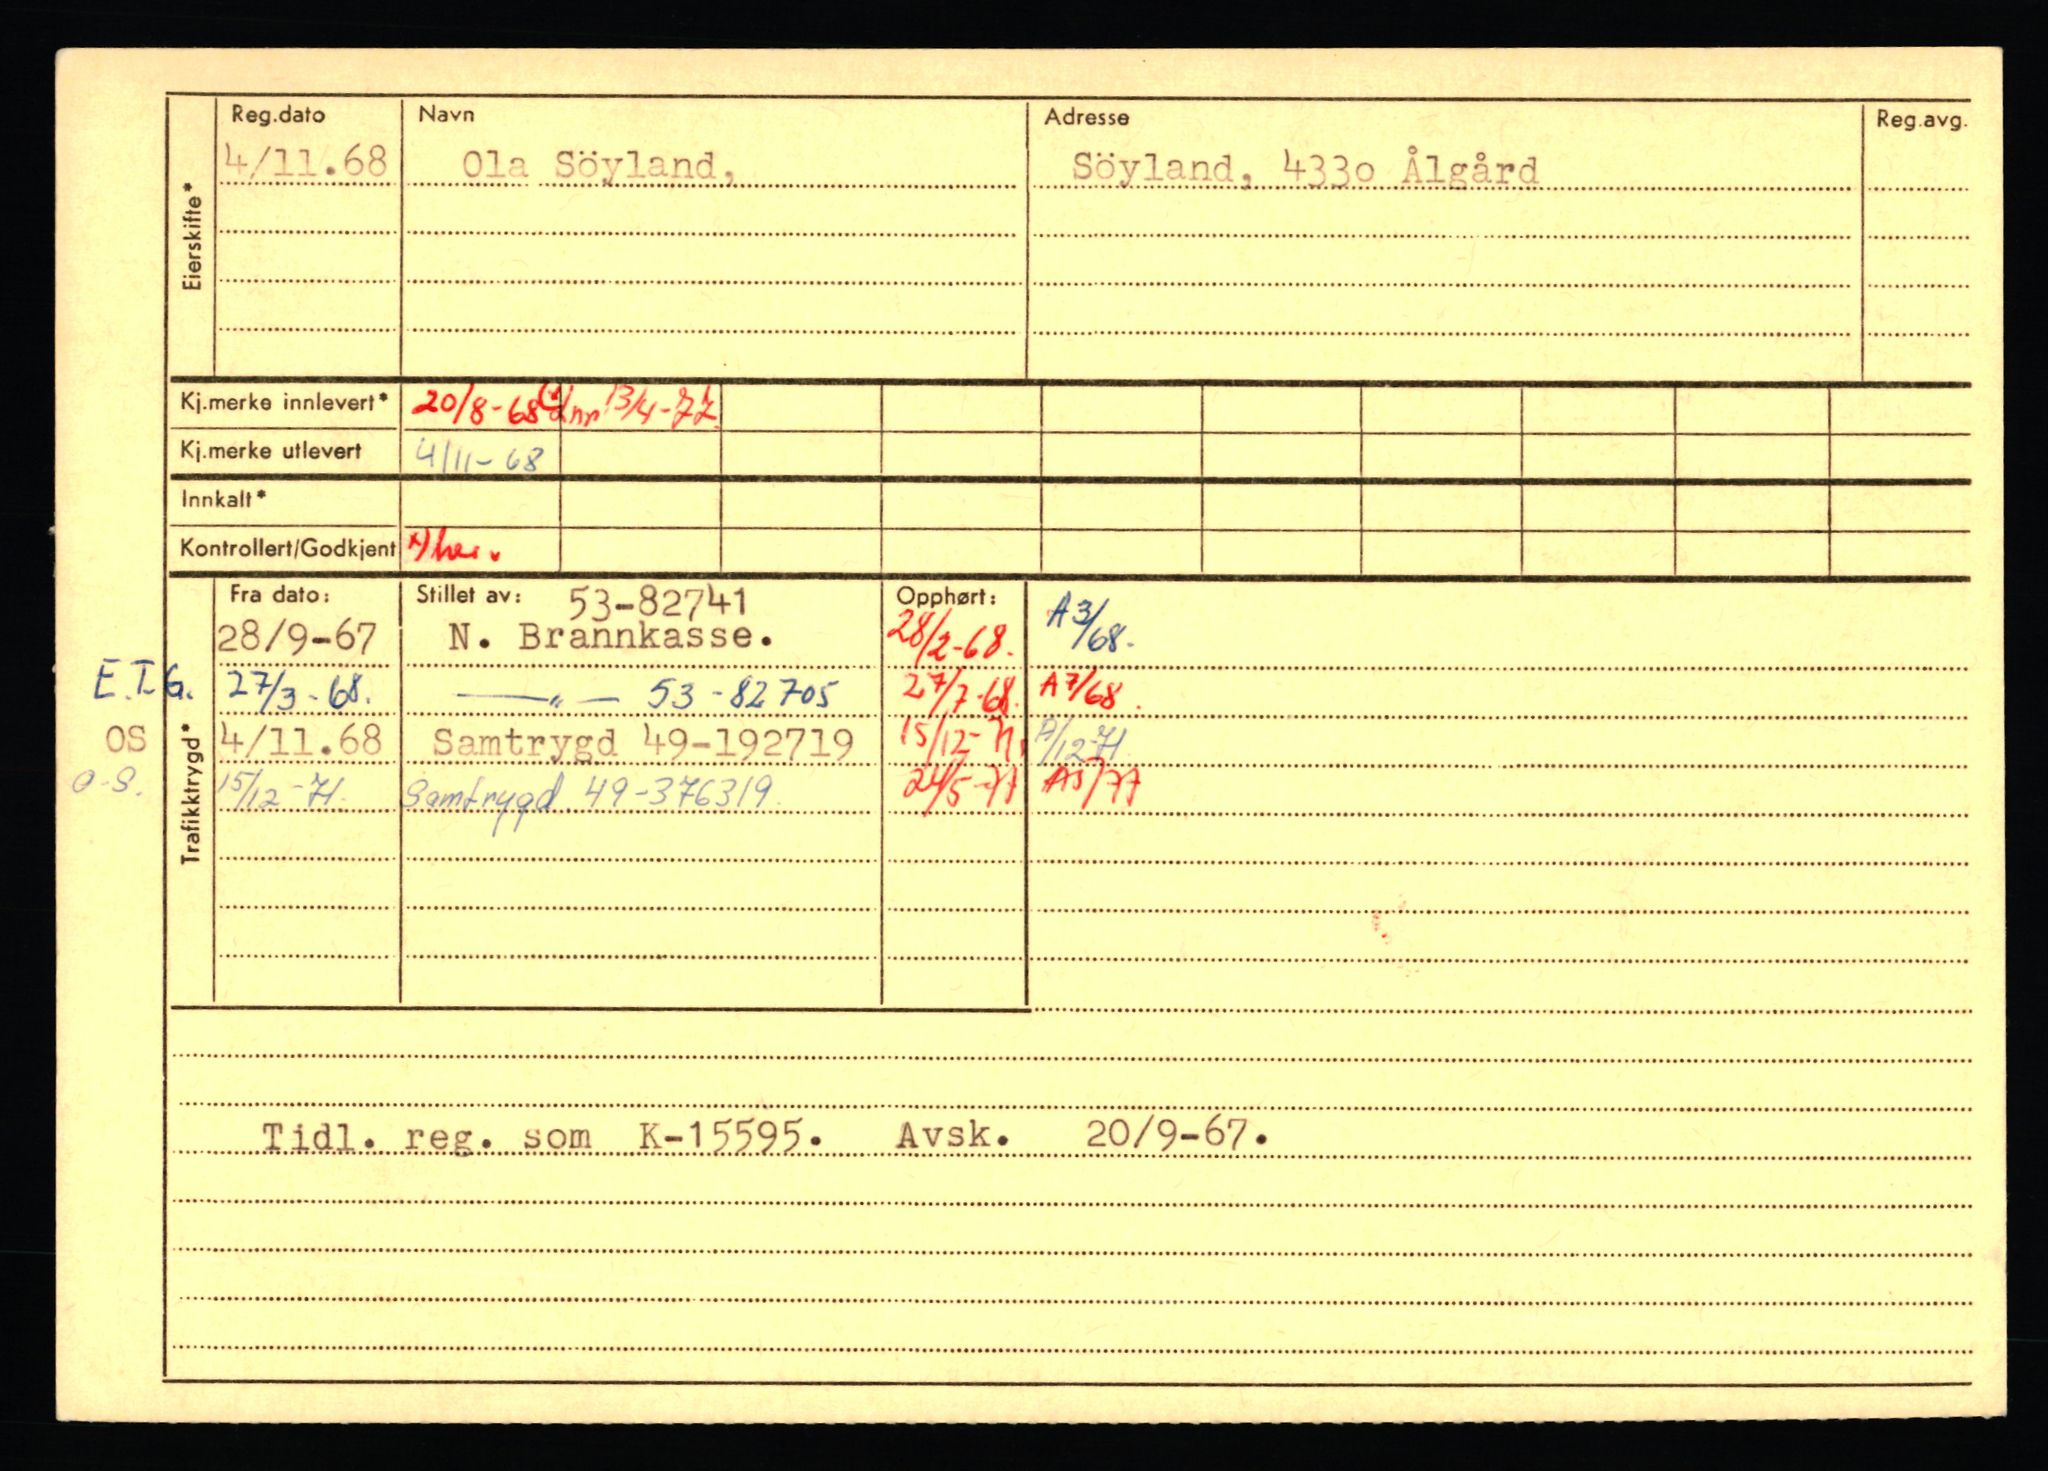 Eierskifte*
Reg.dato Navn Adresse Reg.avg.
4/11.68 Ola Söyland, Söyland, 433o Ålgård
Kj.merke innlevert* 20/8-68 13/4-77.
Kj.merke utlevert 4/11-68
Innkalt*
Kontrollert/Godkjent
Trafikktrygd*
Fra dato: Stillet av: 53-82741 Opphørt:
28/9-67 N. Brannkasse. 28/2-68. A 3/68.
E.T.G. 27/3-68. —"— 53-82705 27/7-68. A 7/68.
OS 4/11.68 Samtrygd 49-192719 15/12-71. A/12-71.
O.S. 15/12-71. Samtrygd 49-376319. 24/5-77 A5/77
Tidl. reg. som K-15595. Avsk. 20/9-67.